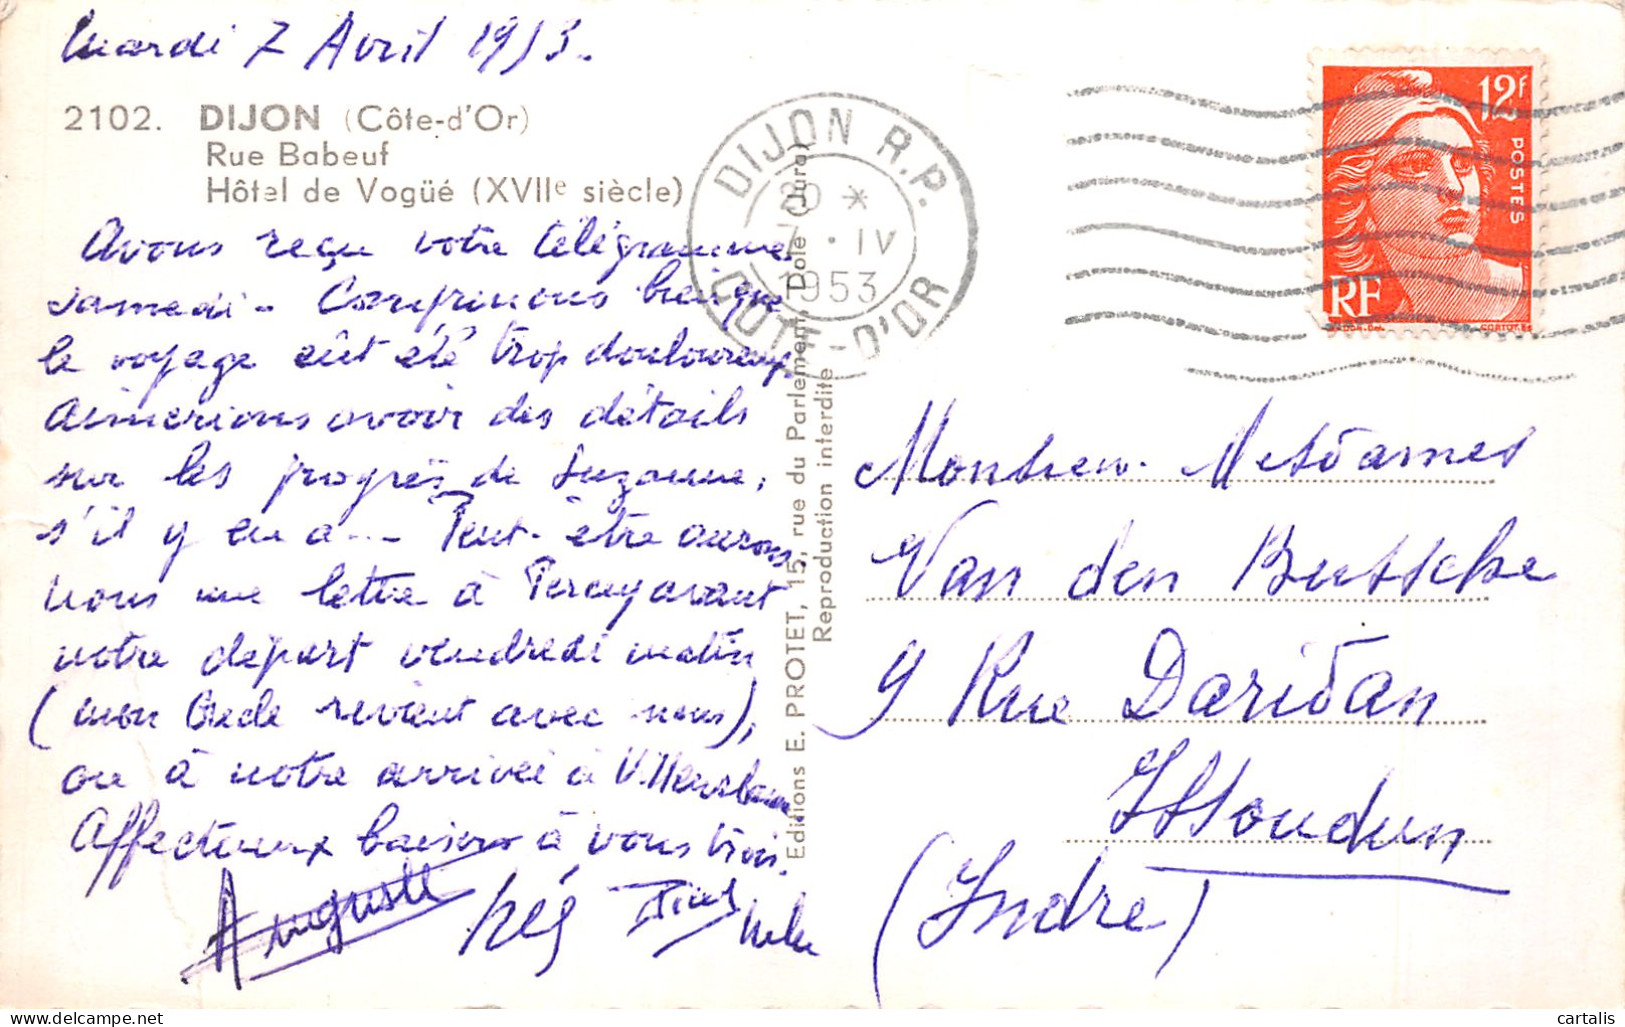 Mardi 7 Avril 1953.
2102. DIJON (Côte-d'Or)
Rue Babeuf
Hôtel de Vogüé (XVIIe siècle)
Avons reçu votre télégramme
samedi - Comprenons bien que
le voyage eût été trop douloureux
Aimerions avoir des détails
sur les progrès de Suzanne,
s'il y en a... Peut-être aurons
nous une lettre à Percey avant
notre départ vendredi matin
(mon Oncle revient avec nous),
ou à notre arrivée à
Affectueux baisers à vous trois.
Auguste
DIJON R.P.
20 *
7 · IV
1953
COTE-D'OR
Editions E. PROTET, 15, rue du Parlement, Dole (Jura)
Reproduction interdite
12f
POSTES
RF
Monsieur. Mesdames
Van den Bussche
9 Rue Daridan
Issoudun
(Indre)
cartalis